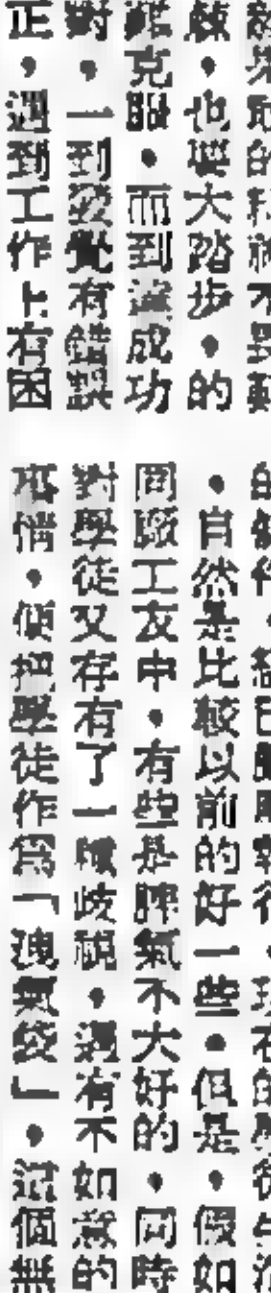 棘，也要大踏步，的
克服，而到達成功
對，一到發覺有錯誤
正，遇到工作上有困
，自然是比較以前的好一些。但是，假如
同廠工友中，有些是脾氣不大好的，同時
對學徒又存有了一種歧視，遇有不如意的
事情，便把學徒作爲「洩氣袋」，這個無